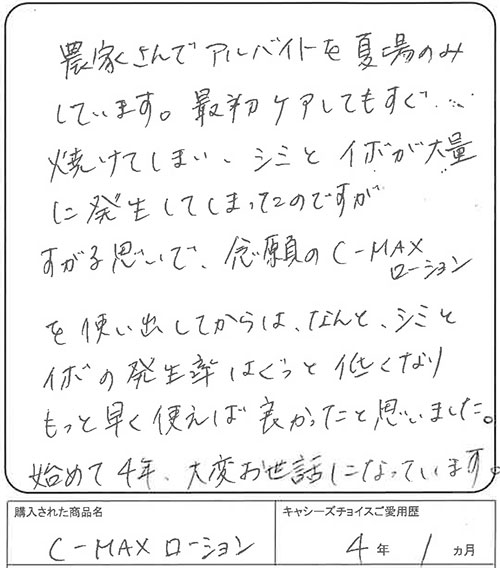 農家さんでアルバイトを夏場のみ
しています。最初ケアしてもすぐ…
焼けてしまい、シミとイボが大量
に発生してしまってたのですが
すがる思いで、念願のC-MAX
ローション
を使い出してからは、なんと、シミと
イボの発生率はぐっと低くなり
もっと早く使えば良かったと思いました。
始めて4年、大変お世話になっています。
購入された商品名
キャシーズチョイスご愛用歴
C-MAXローション
4年 1ヵ月